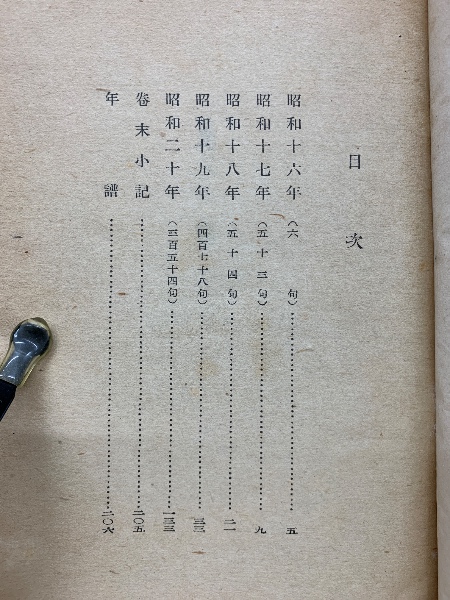 目次
昭和十六年（六句）……五
昭和十七年（五十三句）……九
昭和十八年（五十四句）……二一
昭和十九年（四百七十八句）……三三
昭和二十年（三百五十四句）……一三三
卷末小記……二〇五
年譜……二〇六